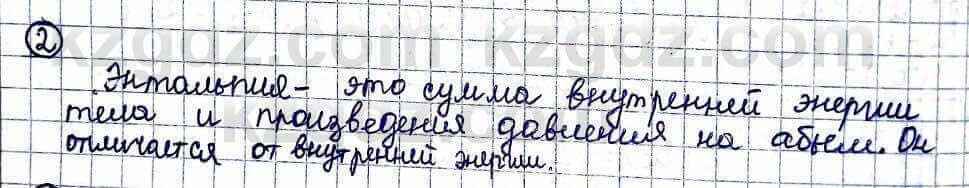 2
kzgdz.com kzgdz.com
Энтальпия - это сумма внутренней энергии
тела и произведения давления на абьем. Он
отличается от внутренней энергии.